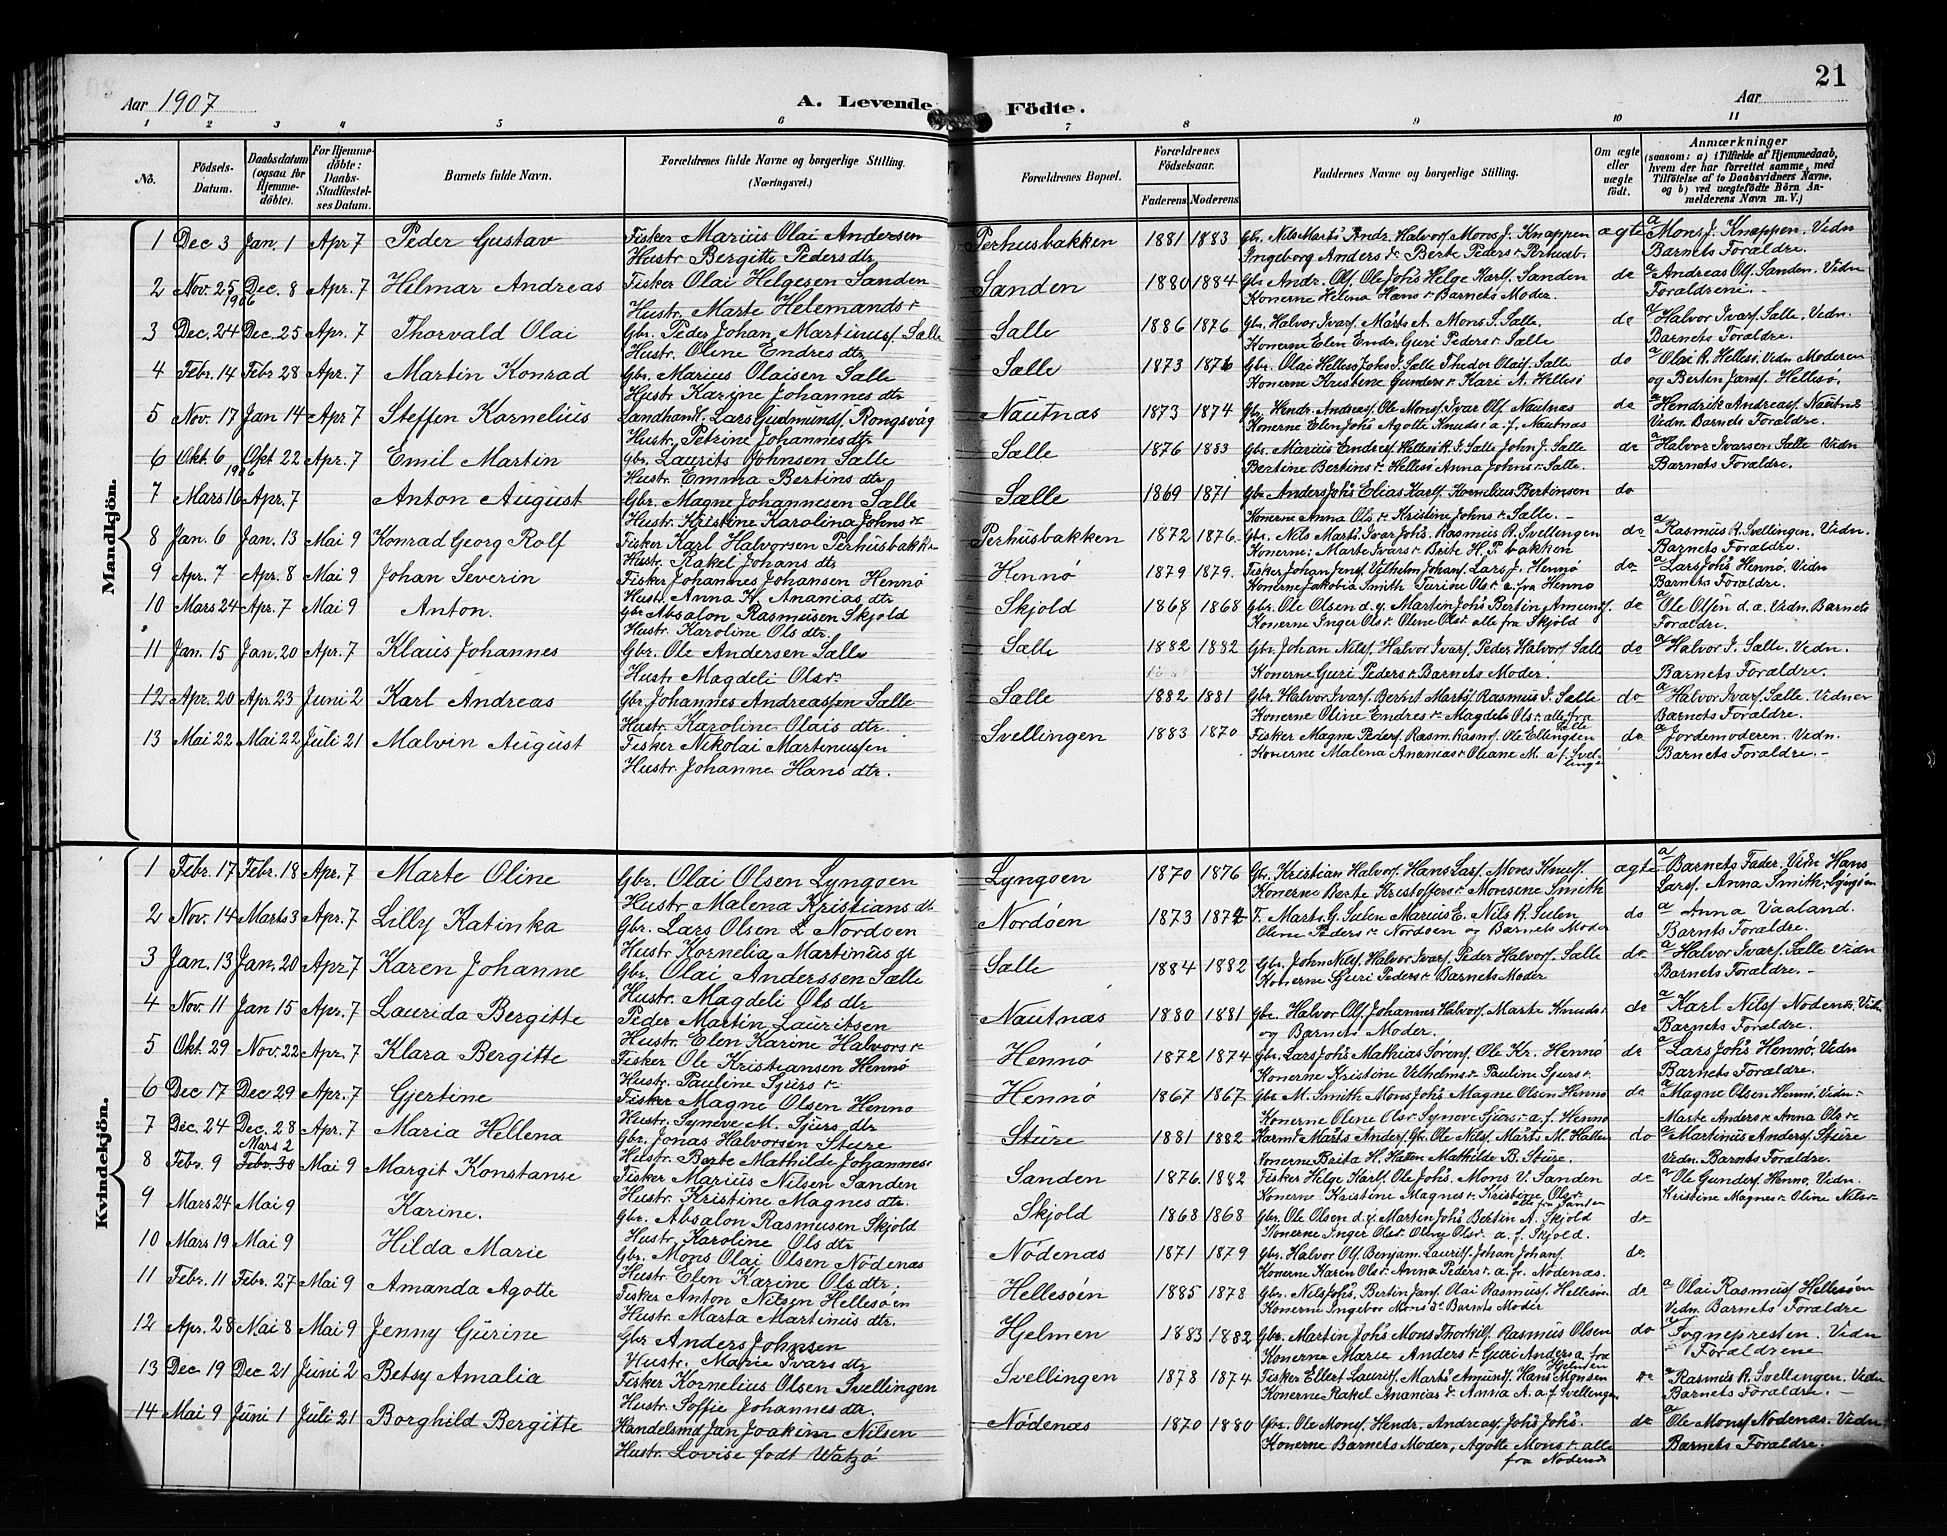 21
Aar 1907 A. Levende Födte. Aar
1 2 3 4 5 6 7 8 9 10 11
No. Födsels-Datum. Daabsdatum (ogsaa for Hjemme-döbte). For Hjemme-döbte: Daabs-Stadfæstel-ses Datum. Barnets fulde Navn. Forældrenes fulde Navne og borgerlige Stilling. (Næringsvei.) Forældrenes Bopæl. Forældrenes Födselsaar. Faderens. Moderens. Faddernes Navne og borgerlige Stilling. Om ægte eller uægte födt. Anmærkninger (saasom: a) i Tilfælde af Hjemmedaab, hvem der har forrettet samme, med Tilföielse af to Daabsvidners Navne, og b) ved uægtefödte Börn An-melderens Navn m. V.)
Mandkjön.
1 Dec 3 Jan. 1 Apr 7 Peder Gustav Fisker Marius Olai Andersen Perhusbakken 1881 1883 Gbr. Nils Marts Andr. Halvors Mons J. Knappen ægte a Mons J. Knappen. Vidn
Hustr Bergitte Peders dtr Ingeborg Anders dr Berte Peders r Perhusb. Barnets Foraldre.
2 Nov. 25 1906 Dec. 8 Apr. 7 Hilmar Andreas Fisker Olai Helgesen Sanden Sanden 1880 1884 Gbr Andr. Olf. Ole Johs Helge Karlf. Sanden do a Andreas Olf Sanden. Vidn
Hustr. Marte Helemands r Konerne Helena Hans r Barnets Moder. Foraldreni. -
3 Dec. 24 Dec. 25 Apr. 7 Thorvald Olai Gbr. Peder Johan Martinusf. Sælle Sælle 1886 1876 Gbr. Halvor Ivarf. Mårts A. Mons S. Sælle. do a Halvor Ivarf Sælle, Vidn.
Hustr. Oline Endres dtr Konerne Elen Endr. Guri Peders r Sælle Barnets Foraldre.
4 Febr. 14 Febr 28 Apr. 7 Martin Konrad Gbr. Marius Olaisen Sælle Sælle 1873 1876 Gbr. Olai Hellesö Johs J. Sælle Thedor Olaif. Sælle do a Olai R. Hellesö. Vidn Moderen
Hustr Karine Johannes dtr Konerne Kristine Gunders r Kari A. Hellesö og Berten Jansf. Hellesö.
5 Nov. 17 Jan 14 Apr 7 Steffen Kornelius Landhandl. Lars Gudmundf. Rongsvåg Nautnas 1873 1874 Gbr. Hendr. Andreasf. Ole Monsf. Ivar Olf. Nautnas do a Hendrik Andreasf. Nautnas
Hustr. Petrine Johannes dtr Konerne Elen Johs Agotte Knuds r a. f. Nautnas Vidn. Barnets Foraldre.
6 Okt. 6 1906 Okt 22 Apr. 7 Emil Martin Gbr. Laurits Johnsen Sælle Sælle 1876 1883 Gbr. Marius Endresf. Hellesö R. J. Sælle John J. Sælle do a Halvor Ivarsen Sælle Vidn
Hustr. Emma Bertins dtr Bertine Bertins r. Hellesö Anna Johns r Sælle. Barnets Foraldre.
7 Mars 16 Apr. 7 Anton August Gbr. Magne Johannesen Sælle Sælle 1869 1871 Gbr Anders Johs Elias Karlf. Kornelius Bertinsen do
Hustr. Kristine Karolina Johns dr Konerne Anna Ols r Kristine Johns r Sælle. -
8 Jan. 6 Jan. 13 Mai 9 Konrad Georg Rolf Fisker Karl Halvorsen Perhusbakkn Perhusbakken 1872 1876. Gbr. Nils Marts Ivar Johs. Rasmus R. Svellingen do a Rasmus R. Svellingen. Vidn.
Hustr. Rakel Johans dtr Konerne: Marte Ivars r Brite H. P. bakken Barnets Foraldre.
9 Apr. 7 Apr. 8 Mai 9 Johan Severin Fisker Johannes Johansen Hennö Hennö 1879 1879. Fisker Johan Jensf. Vilhelm Johanf. Lars J. Hennö do a Lars Johs Hennö. Vidn
Hustr. Anna K. Ananias dtr Konerne Jakobia Smith Turine Ols r a. fra Henno Barnets Foraldre.
10 Mars 24 Apr. 7 Mai 9 Anton. Gbr Absalon Rasmusen Skjold Skjold 1868 1868 Gbr. Ole Olsen d. y. Martin Johs Bertin Amundf. do a Ole Olsen d. a. Vidn. Barnets
Hustr. Karoline Ols dtr. Konerne Inger Ols r. Oline Ols r alle fra Skjold Foraldre.
11 Jan. 15 Jan. 20 Apr. 7 Klaus Johannes Gbr. Ole Andersen Sælle Sælle 1882 1882 Gbr. Johan Nilsf. Halvor Ivarf. Peder Halvorf. Sælle do a Halvor J. Sælle. Vidn.
Hustr Magdeli Ols r. Konerne Guri Peders r Barnets Moder. Barnets Foraldre.
12 Apr. 20 Apr. 23 Juni 2 Karl Andreas Gbr. Johannes Andreassen Sælle Sælle 1882 1881 Gbr. Halvor Ivarf. Bernt Martsf. Rasmus J. Sælle do a Halvor Ivarf. Sælle. Vidner
Hustr. Karoline Olais dtr. Konerne Oline Endres r. Magdela Ols r. alle fra Sælle Barnets Foraldre.
13 Mai 22 Mai 22 Juli 21 Malvin August Fisker Nikolai Martinussen Svellingen 1883 1870 Fisker Magne Pedersf. Rasm. Rasmsf. Ole Ellingsen do a Jordemoderen. Vidn.
Hustr. Johanne Hans dtr. Konerne Malena Ananias r. Oleane M. a f. Svellingen Barnets Foraldre. -
Kvindekjön.
1 Febr. 17 Febr. 18 Apr. 7 Marte Oline Gbr. Olai Olsen Lyngoen Lyngoen 1870 1876 Gbr. Kristian Halvorf. Hans Larsf. Mons Knudf. ægte a Barnets Fader. Vidn Hans
Hustr Malena Kristians dtr Konerne Berte Kristoffers r Monsine Smith Larsf. Anna Smith. Lyngöen
2 Nov. 14 Marts 3 Apr. 7 Lilly Katinka Gbr. Lars Olsen L Nordöen Nordöen 1873 1874 F. Marts G. Sulen Marius E. Nils R. Sulen do a Anna Vaaland.
Hustr Kornelia Martinus dr Oline Peders r. Nordöen og Barnets Moder Barnets Foraldre.
3 Jan. 13 Jan. 20 Apr 7 Karen Johanne Gbr. Olai Anderssen Sælle Sælle 1884 1882 Gbr. John Nilsf. Halvor Ivarf. Peder Halvorf. Sælle do a Halvor Ivarf. Sælle Vidn
Hustr. Magdeli Ols dtr Konerne Sjuri Peders r. Barnets Moder Barnets Foraldre. -
4 Nov. 11 Jan 15 Apr. 7 Laurida Bergitte Peder Martin Lauritsen Nautnas 1880 1881 Gbr. Halvor Olf. Johannes Halvorf. Marte Knuds r do a Karl Nilsf Nodenæs. Vidn
Hustr. Elen Karine Halvors r og Barnets Moder. Barnets Foraldre.
5 Okt. 29 Nov. 22 Apr. 7 Klara Bergitte Fisker Ole Kristiansen Hennö Hennö 1872 1874 Gbr. Lars Johs Mathias Sörenf. Ole Kr. Hennö do a Lars Johs Hennö. Vidn
Hustr. Pauline Sjurs r Konerne Kristine Vilhelms r Pauline Sjurs r Barnets Foraldre.
6 Dec 17 Dec 29 Apr. 7 Gjertine Fisker Magne Olsen Henno Hennö 1867 1867 Gbr M. Smith Mons Johs Magne Olsen Henno do a Magne Olsen Hennö. Vidn
Hustr. Syneve M. Sjurs dtr Konerne Oline Ols r Synove Sjurs r a. f. Henno Marte Anders r Anna Ols r
7 Dec. 24 Dec. 28 Apr. 7 Maria Hellena Gbr. Jonas Halvorsen Sture Sture 1881 1882 Marts Andersf. Gbr. Ole Nilsf. Mårts M. Hatlen do a Martinus Andersf. Sture
Hustr. Berte Mathilde Johannes r Konerne Brita H. Hatten Mathilde B. Sture. Vidn. Barnets Foraldre.
8 Febr. 9 Mars 2 Febr. 30 Mai 9 Margit Konstanse Fisker Marius Nilsen Sanden Sanden 1876 1882 Fisker Helge Karlf. Ole Johs. Mons V. Sanden do a Ole Gundersf. Henno, Vidn.
Hustr. Kristine Magnes dtr. Konerne Kristine Magnes r. Kristine Ols r alle fra Sanden Kristine Magnes r Oline Nils r
9 Mars 24 Mai 9 Karine. Gbr. Absalon Rasmusen Skjold Skjold 1868 1868 Gbr. Ole Olsen d. y. Martin Johs Bertin A. Skjold do
Hustr. Karoline Ols dtr Konerne Inger Ols r. Olivy Ols r a. f. Skjold.
10 Mars 19 Mai 9 Hilda Marie Gbr. Mons Olai Olsen Nödenas Nödenas 1871 1879 Gbr. Halvor Olf Benjam. Lauritf. Johan Johanf. do
Hustr. Elen Karine Ols dtr. Konerne Karen Ols r. Anna Peders r. a. fr. Nodenas.
11 Febr. 11 Febr. 27 Mai 9 Amanda Agotte Fisker Anton Nilsen Hellesöen Hellesöen 1885 1878 Gbr. Nils Johs. Bertin Jansf. Olai Rasmusf. Hellesö do a Olai Rasmusf Hellesöen
Hustr. Marta Martinus dtr. Konerne Ingebor Mons dr Barnets Moder Vidn. Barnets Foraldre
12 Apr. 28 Mai 8 Mai 9 Jenny Gurine Gbr Anders Johnsen Hjelmen 1883 1882 Gbr. Martin Johs Mons Thorkilf. Rasmus Olsen do a Sognepresten. Vidn
Hustr. Marie Ivars dtr Konerne Marie Anders r Guri Anders a. fra Hjelmen Foraldrene
13 Dec 19 Dec 21 Juni 2 Betsy Amalia Fisker Kornelius Olsen Svellingen Svellingen 1878 1874 Fisker Ellert Lauritf. Marts Amundf. Hans Monsen do a Rasmus R. Svellingen. Vidn
Hustr. Soffie Johannes dtr. Konerne Rakel Ananias r Anna A. a f Svellingen Barnets Foraldre. -
14 Mai 9 Juni 1 Juli 21 Borghild Bergitte Handelsmd Jan Joakim Nilsen Nödenas 1870 1880 Gbr. Ole Monsf. Hendr. Andreasf. Johs Johs. do a Ole Monsf Nodenas. Vidn
Hustr. Lovise født Watzö Konerne Barnets Moder, Agotte Mons r. alle fra Nodenas Barnets Foraldre.